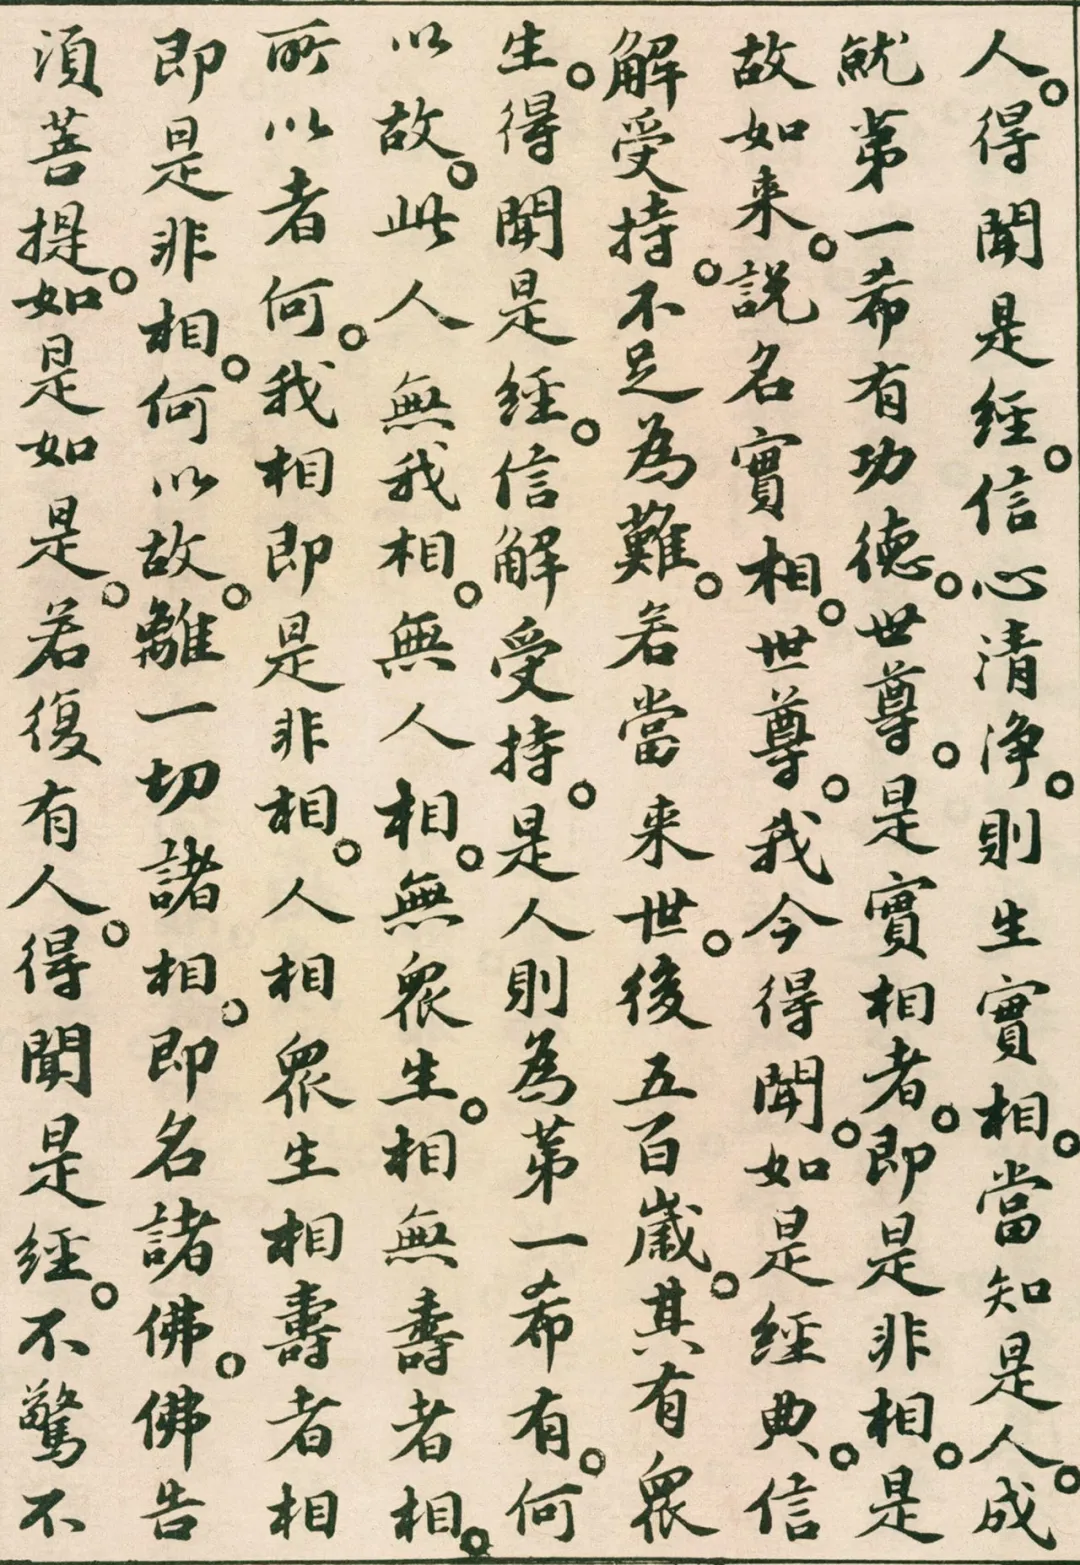 人。得聞是經。信心清淨。則生實相。當知是人。成
就第一希有功德。世尊。是實相者。即是非相。是
故如來。說名實相。世尊。我今得聞。如是經典。信
解受持。不足為難。若當來世。後五百歲。其有眾
生。得聞是經。信解受持。是人則為第一希有。何
以故。此人無我相。無人相。無眾生。相無壽者相。
所以者何。我相即是非相。人相眾生相壽者相
即是非相。何以故。離一切諸相。即名諸佛。佛告
須菩提。如是如是。若復有人。得聞是經。不驚不